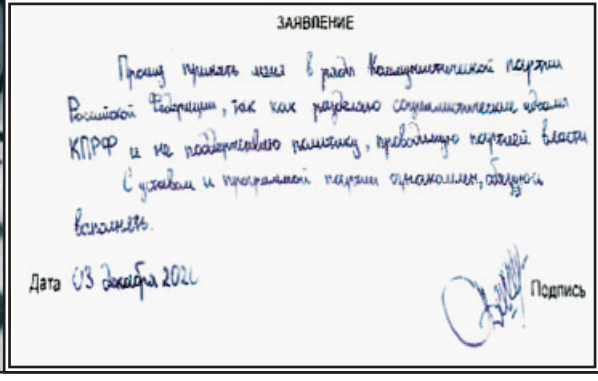 ЗАЯВЛЕНИЕ
Прошу принять меня в ряды Коммунистической партии
Российской Федерации, так как разделяю социалистические идеалы
КПРФ и не поддерживаю политику, проводимую партией власти
С уставом и программой партии ознакомлен, обязуюсь
выполнять.
Дата 03 декабря
Подпись